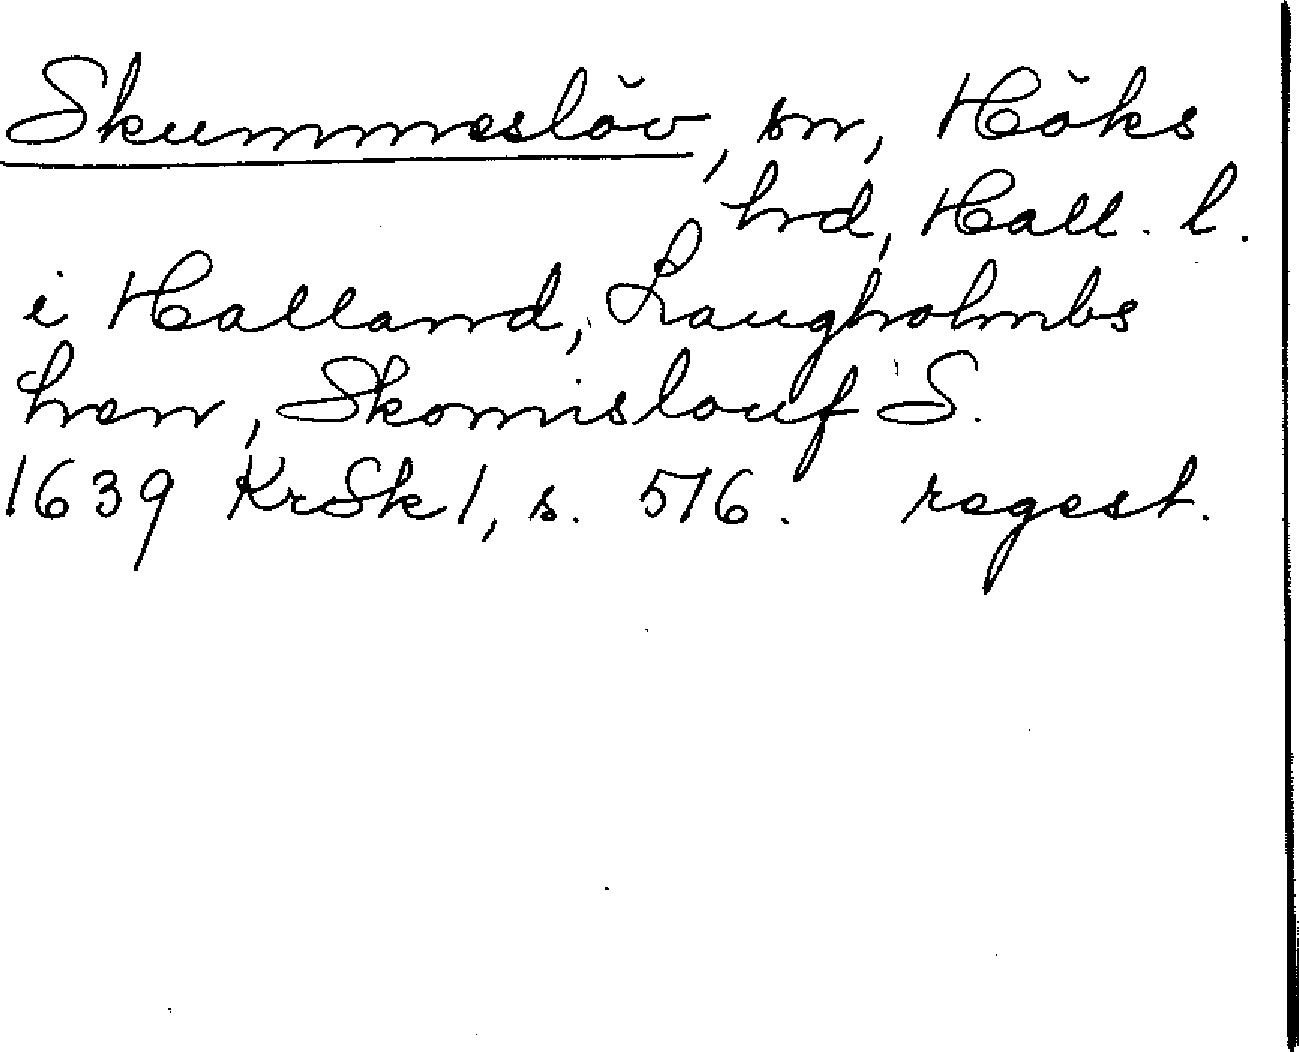 Skummeslöv, sn, Höks
hrd, Hall. l.
i Halland, Laugholmbs
hen, Skomislouf S.
1639 KrSk 1, s. 516. regest.